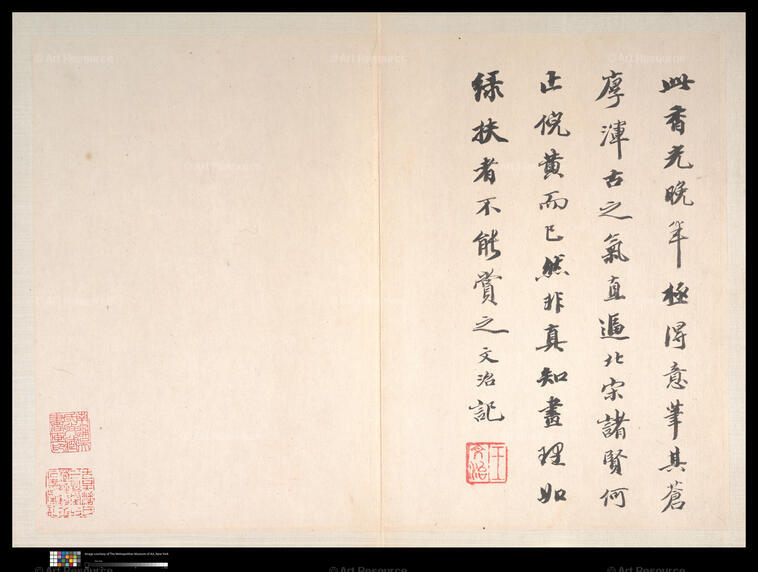 此香光晚年極得意筆其蒼
厚渾古之氣直逼北宋諸賢何
止倪黄而已然非真知畫理如
扶者不能賞之文治記
王文治
Image courtesy of The Metropolitan Museum of Art, New York
© Art Resource